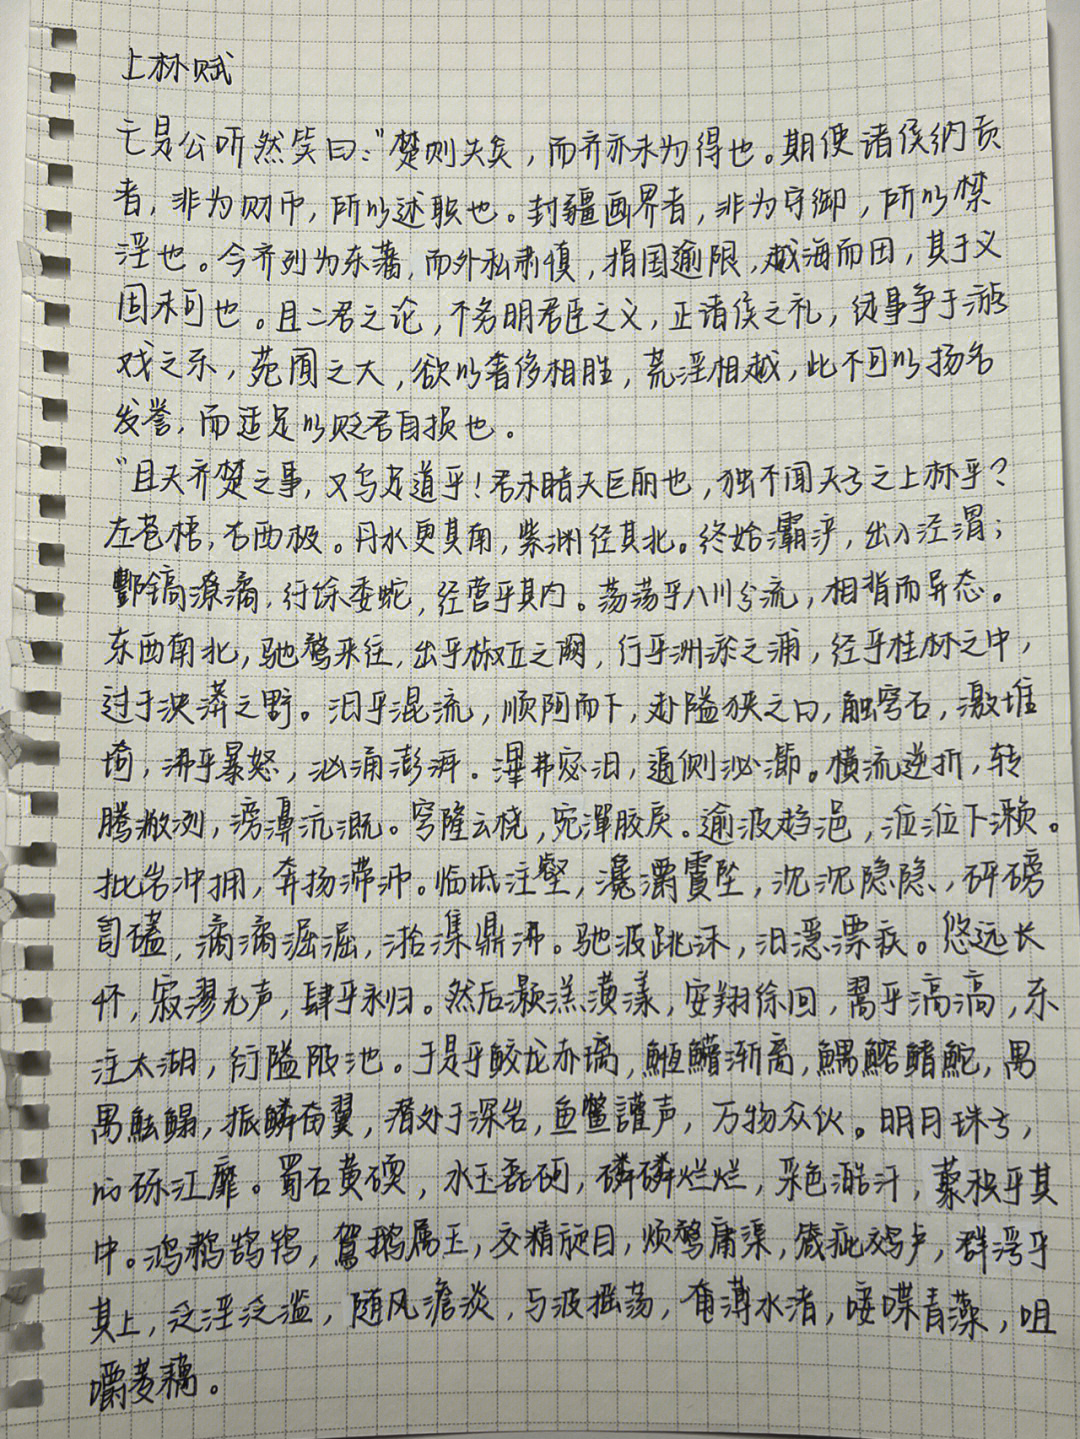 上林赋
亡是公听然笑曰:"楚则失矣,而齐亦未为得也。期使诸侯纳贡
者,非为财币,所以述职也。封疆画界者,非为守御,所以禁
淫也。今齐列为东藩,而外私肃慎,捐国逾限,越海而田,其于义
固未可也。且二君之论,不务明君臣之义,正诸侯之礼,徒事争于游
戏之乐,苑囿之大,欲以奢侈相胜,荒淫相越,此不可以扬名
发誉,而适足以贬君自损也。
"且夫齐楚之事,又乌足道乎!君未睹夫巨丽也,独不闻天子之上林乎?
左苍梧,右西极。丹水更其南,紫渊径其北。终始灞浐,出入泾渭;
酆镐潦潏,纡馀委蛇,经营乎其内。荡荡乎八川分流,相背而异态。
东西南北,驰骛来往,出乎椒丘之阙,行乎洲淤之浦,经乎桂林之中,
过乎泱漭之野。汩乎混流,顺阿而下,赴隘狭之口,触穹石,激堆
埼,沸乎暴怒,汹涌澎湃。滭弗宓汩,逼侧泌瀄。横流逆折,转
腾潎洌,滂濞沆溉。穹隆云桡,宛潬胶戾。逾波趋浥,涖涖下濑。
批岩冲拥,奔扬滞沛。临坻注壑,瀺灂霣坠,沈沈隐隐,砰磅
訇磕,潏潏淈淈,湁潗鼎沸。驰波跳沫,汩濦漂疾。悠远长
怀,寂漻无声,肆乎永归。然后灏溔潢漾,安翔徐回,翯乎滈滈,东
注太湖,衍溢陂池。于是乎鲛龙赤螭,䱍䲛渐离,鰅鰫鳍鮀,禺
禺魼鳎,揵鳞奋翼,潜处于深岩,鱼鳖讙声,万物众伙。明月珠子,
的砾江靡。蜀石黄碝,水玉磊砢,磷磷烂烂,采色澔汗,藂积乎其
中。鸿鹔鹄鸨,鴐鹅属玉,交精旋目,烦鹜庸渠,箴疵䴔卢,群浮乎
其上,泛淫泛滥,随风澹淡,与波摇荡,奄薄水渚,唼喋菁藻,咀
嚼菱藕。